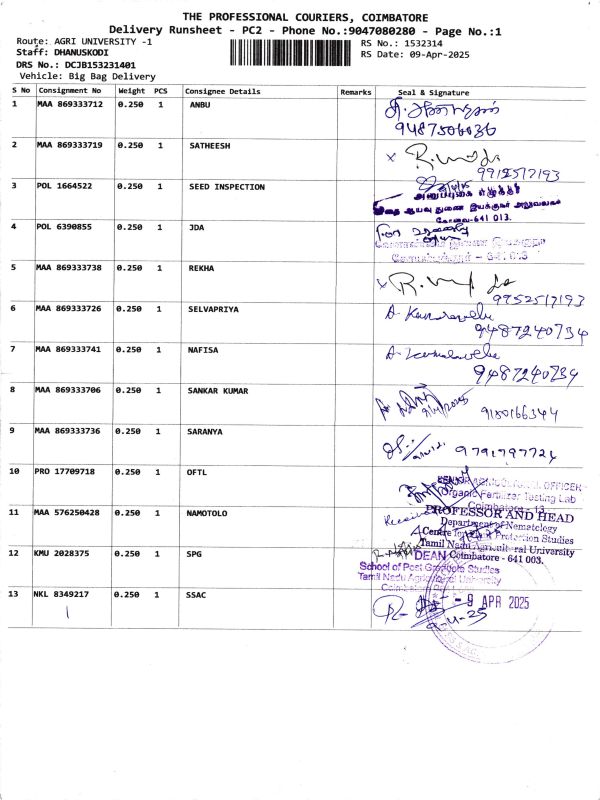 THE PROFESSIONAL COURIERS, COIMBATORE
Delivery Runsheet - PC2 - Phone No.:9047080280 - Page No.:1
Route: AGRI UNIVERSITY -1
Staff: DHANUSKODI
DRS No.: DCJB153231401
Vehicle: Big Bag Delivery
RS No.: 1532314
RS Date: 09-Apr-2025
S No Consignment No Weight PCS Consignee Details Remarks Seal & Signature
1 MAA 869333712 0.250 1 ANBU
9487506036
2 MAA 869333719 0.250 1 SATHEESH
9952517193
3 POL 1664522 0.250 1 SEED INSPECTION
விதை ஆய்வு துணை இயக்குநர் அலுவலகம்
கோவை-641 013.
4 POL 6390855 0.250 1 JDA
641 013
5 MAA 869333738 0.250 1 REKHA
9952517193
6 MAA 869333726 0.250 1 SELVAPRIYA
9487240734
7 MAA 869333741 0.250 1 NAFISA
9487240734
8 MAA 869333706 0.250 1 SANKAR KUMAR
9180166344
9 MAA 869333736 0.250 1 SARANYA
9791797724
10 PRO 17709718 0.250 1 OFTL
SENIOR AGRICULTURAL OFFICER
Organic Fertilizer Testing Lab
Coimbatore - 13
11 MAA 576250428 0.250 1 NAMOTOLO
Received
PROFESSOR AND HEAD
Department of Nematology
Centre for Plant Protection Studies
Tamil Nadu Agricultural University
Coimbatore - 641 003.
12 KMU 2028375 0.250 1 SPG
DEAN
School of Post Graduate Studies
Tamil Nadu Agricultural University
13 NKL 8349217 0.250 1 SSAC
- 9 APR 2025